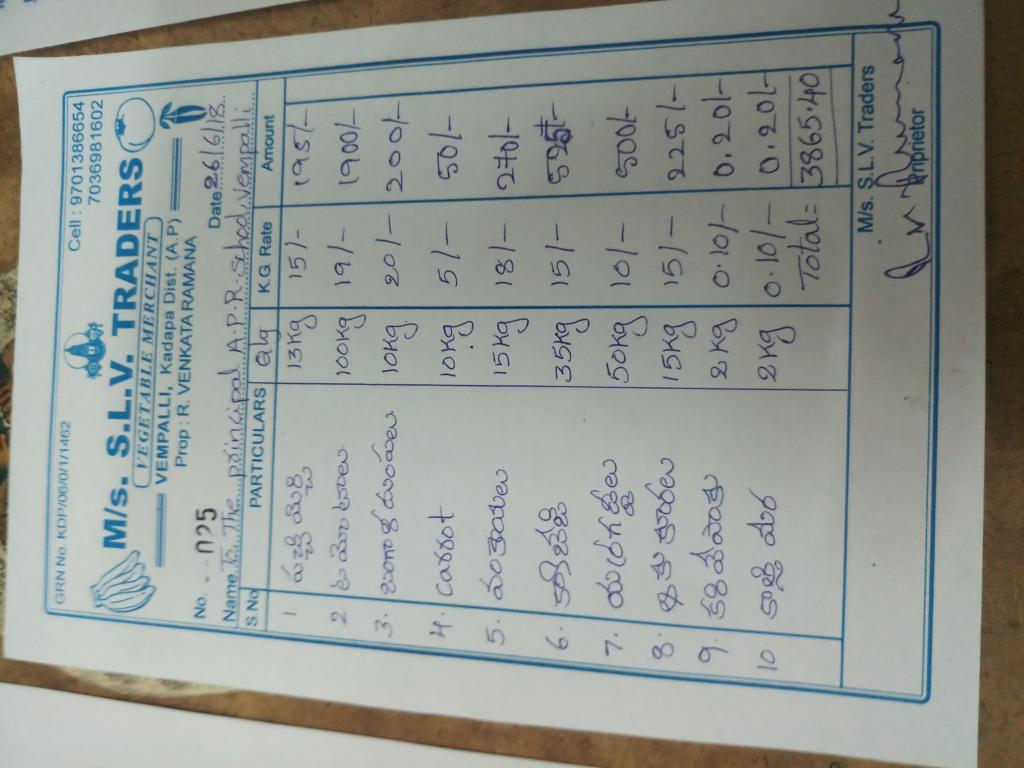 GRN No. KDP/06/0/1/1462 Cell : 9701388654
7036981602
M/s. S.L.V. TRADERS
VEGETABLE MERCHANT
VEMPALLI, Kadapa Dist. (A.P)
Prop : R. VENKATA RAMANA
No. 025 Date 26/6/18
Name To The principal A.P.R. School, Vempalli.
S.No PARTICULARS Qlg K.G. Rate Amount
1 పచ్చి మిర్చి 13Kg 15/- 195/-
2 టమోటాలు 100Kg 19/- 1900/-
3. బంగాళదుంపలు 10Kg 20/- 200/-
4. Carrot 10Kg 5/- 50/-
5. వంకాయలు 15Kg 18/- 270/-
6. 35Kg 15/- 525/-
7. 50Kg 10/- 500/-
8. ఆకు కూరలు 15Kg 15/- 225/-
9. కరివేపాకు 2Kg 0.10/- 0.20/-
10. 2Kg 0.10/- 0.20/-
Total= 3865.40
M/s. S.L.V. Traders
Proprietor